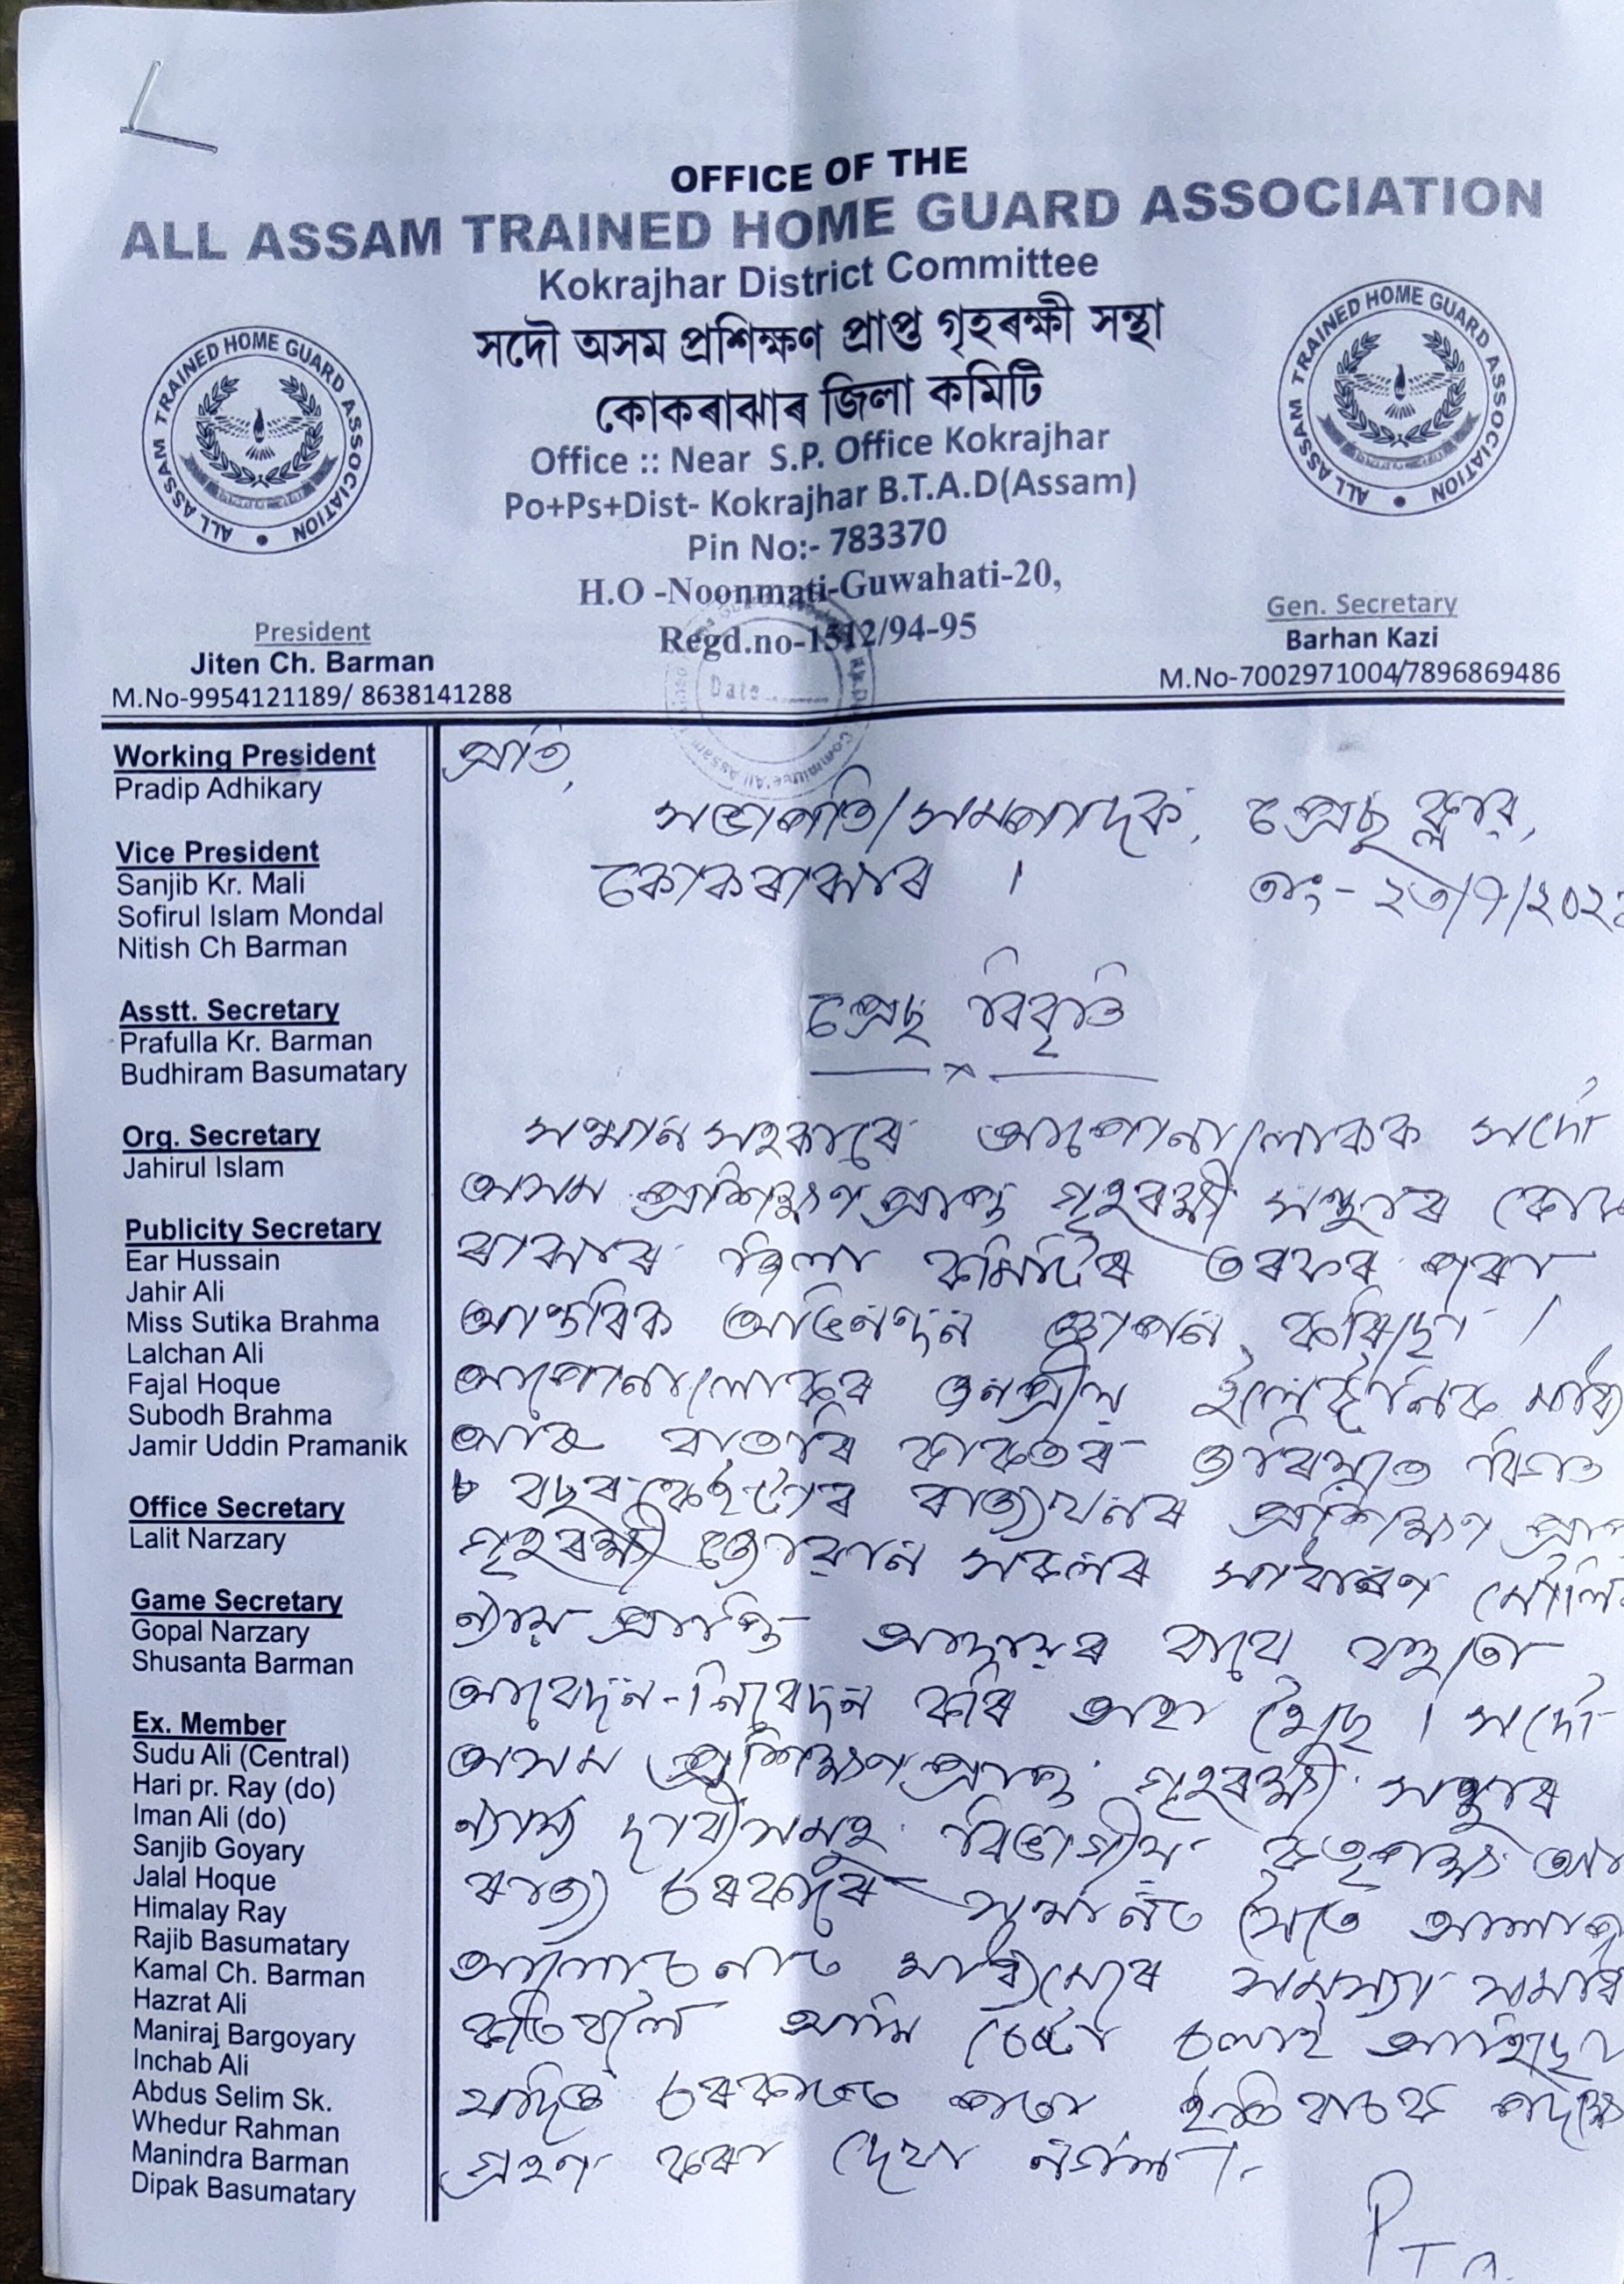 OFFICE OF THE
ALL ASSAM TRAINED HOME GUARD ASSOCIATION
Kokrajhar District Committee
সদৌ অসম প্ৰশিক্ষণ প্ৰাপ্ত গৃহৰক্ষী সন্থা
কোকৰাঝাৰ জিলা কমিটি
Office :: Near S.P. Office Kokrajhar
Po+Ps+Dist- Kokrajhar B.T.A.D(Assam)
Pin No:- 783370
H.O -Noonmati-Guwahati-20,
Regd.no-1512/94-95
ALL ASSAM TRAINED HOME GUARD ASSOCIATION
ALL ASSAM TRAINED HOME GUARD ASSOCIATION
President
Jiten Ch. Barman
M.No-9954121189/ 8638141288
Gen. Secretary
Barhan Kazi
M.No-7002971004/7896869486
Date
Working President
Pradip Adhikary
Vice President
Sanjib Kr. Mali
Sofirul Islam Mondal
Nitish Ch Barman
Asstt. Secretary
Prafulla Kr. Barman
Budhiram Basumatary
Org. Secretary
Jahirul Islam
Publicity Secretary
Ear Hussain
Jahir Ali
Miss Sutika Brahma
Lalchan Ali
Fajal Hoque
Subodh Brahma
Jamir Uddin Pramanik
Office Secretary
Lalit Narzary
Game Secretary
Gopal Narzary
Shusanta Barman
Ex. Member
Sudu Ali (Central)
Hari pr. Ray (do)
Iman Ali (do)
Sanjib Goyary
Jalal Hoque
Himalay Ray
Rajib Basumatary
Kamal Ch. Barman
Hazrat Ali
Maniraj Bargoyary
Inchab Ali
Abdus Selim Sk.
Whedur Rahman
Manindra Barman
Dipak Basumatary
প্ৰতি,
সভাপতি/সম্পাদক, প্ৰেছ ক্লাব,
কোকৰাঝাৰ ।
তাং-
প্ৰেছ বিবৃতি
সন্মান সহকাৰে আপোনালোকক সদৌ
অসম প্ৰশিক্ষণ প্ৰাপ্ত গৃহৰক্ষী সন্থাৰ কোক
ৰাঝাৰ জিলা কমিটিৰ তৰফৰ পৰা
আন্তৰিক অভিনন্দন জ্ঞাপন কৰিছো ।
আপোনালোকৰ
আৰু বাতৰি কাকতৰ জৰিয়তে বিগত
৮ বছৰ ৰাজ্যখনৰ প্ৰশিক্ষণ
গৃহৰক্ষী জোৱান সকলৰ সাধাৰণ
ন্যায় প্ৰাপ্তি আদায়ৰ বাবে বহুতো
আবেদন-নিবেদন কৰি অহা হৈছে । সদৌ
অসম প্ৰশিক্ষণ প্ৰাপ্ত গৃহৰক্ষী সন্থাৰ
ন্যায্য দাবীসমূহ বিভাগীয়
ৰাজ্য চৰকাৰে
আলোচনাৰ মাধ্যমেৰে সমস্যা
আমি চেষ্টা চলাই আহিছো
যদিও চৰকাৰে
গ্ৰহণ কৰা দেখা নগল ।